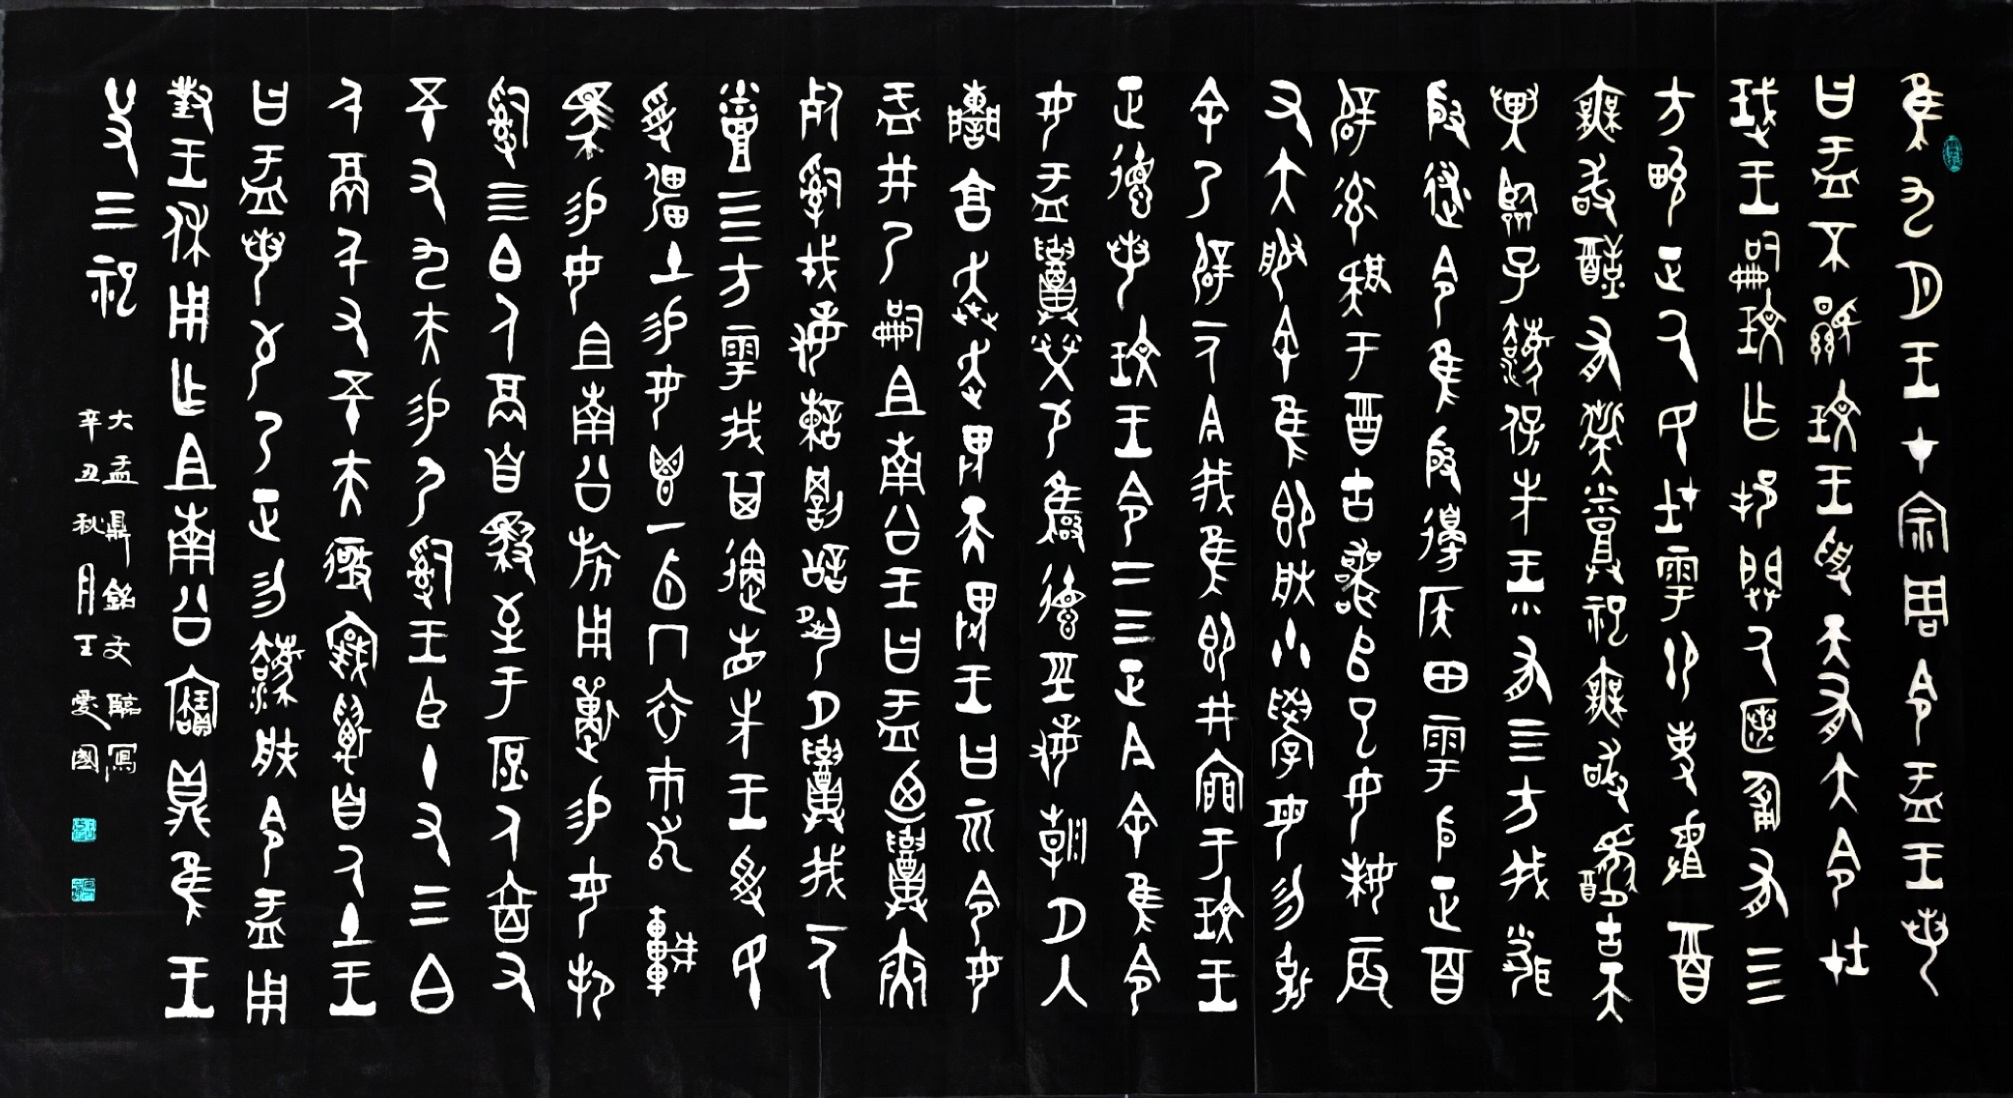 隹九月王才宗周令盂王若
曰盂不顯玟王受天有大令在
珷王嗣玟乍邦闢氒匿匍有四
方畯正氒民在雩御事䖒酉
無敢酖有祡烝祀無敢𨢑古天
異臨子灋保先王有四方我聞
殷述令隹殷邊侯田雩殷正百
辟率肄于酉古喪師已女妹辰
又大服余隹即朕小學女勿克
余乃辟一人今我隹即井廩于玟王
正德若玟王令二三正今余隹令
女盂召榮敬雍德巠敏朝夕入
讕享奔走畏天畏王曰而令女
盂井乃嗣且南公王曰盂廼召夾
死司戎敏諫罰訟夙夕召我一人
烝四方雩我其遹省先王受民
受疆土易女鬯一卣冂衣市舄車馬
易乃且南公旂用狩易女邦
司四白人鬲自馭至于庶人六百又
五十又九夫易夷司王臣十又三白
人鬲千又五十夫遷自氒土王
曰盂若敬乃正勿灋朕令盂用
對王休用乍且南公寶鼎隹王
廿又三祀
大盂鼎銘文臨寫
辛丑秋月王愛國